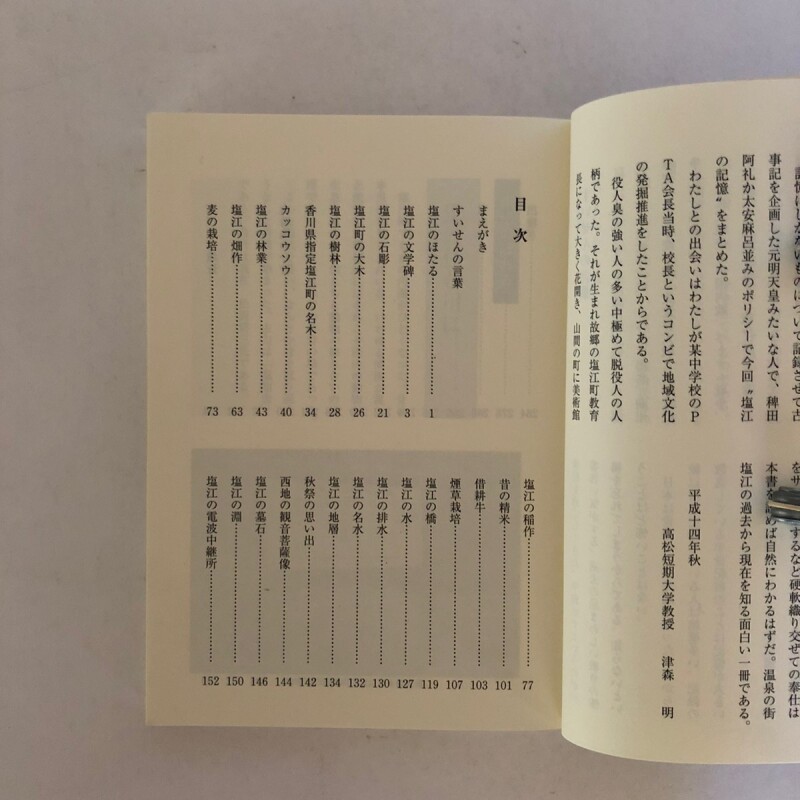 記憶にしかないものについて記録させて古
事記を企画した元明天皇みたいな人で、稗田
阿礼か太安麻呂並みのポリシーで今回〝塩江
の記憶〟をまとめた。
わたしとの出会いはわたしが某中学校のP
TA会長当時、校長というコンビで地域文化
の発掘推進をしたことからである。
役人臭の強い人の多い中極めて脱役人の人
柄であった。それが生まれ故郷の塩江町教育
長になって大きく花開き、山間の町に美術館
をサ するなど硬軟織り交ぜての奉仕は
本書を めば自然にわかるはずだ。温泉の街
塩江の過去から現在を知る面白い一冊である。
平成十四年秋
高松短期大学教授 津森 明
目次
まえがき
すいせんの言葉
塩江のほたる……………… 1
塩江の文学碑……………… 3
塩江の石彫……………… 21
塩江町の大木……………… 26
塩江の樹林……………… 28
香川県指定塩江町の名木……………… 34
カッコウソウ……………… 40
塩江の林業……………… 43
塩江の畑作……………… 63
麦の栽培……………… 73
塩江の稲作……………… 77
昔の精米……………… 101
借耕牛……………… 103
煙草栽培……………… 107
塩江の橋……………… 119
塩江の水……………… 127
塩江の排水……………… 130
塩江の名水……………… 132
塩江の地層……………… 134
秋祭の思い出……………… 142
西地の観音菩薩像……………… 144
塩江の墓石……………… 146
塩江の淵……………… 150
塩江の電波中継所……………… 152